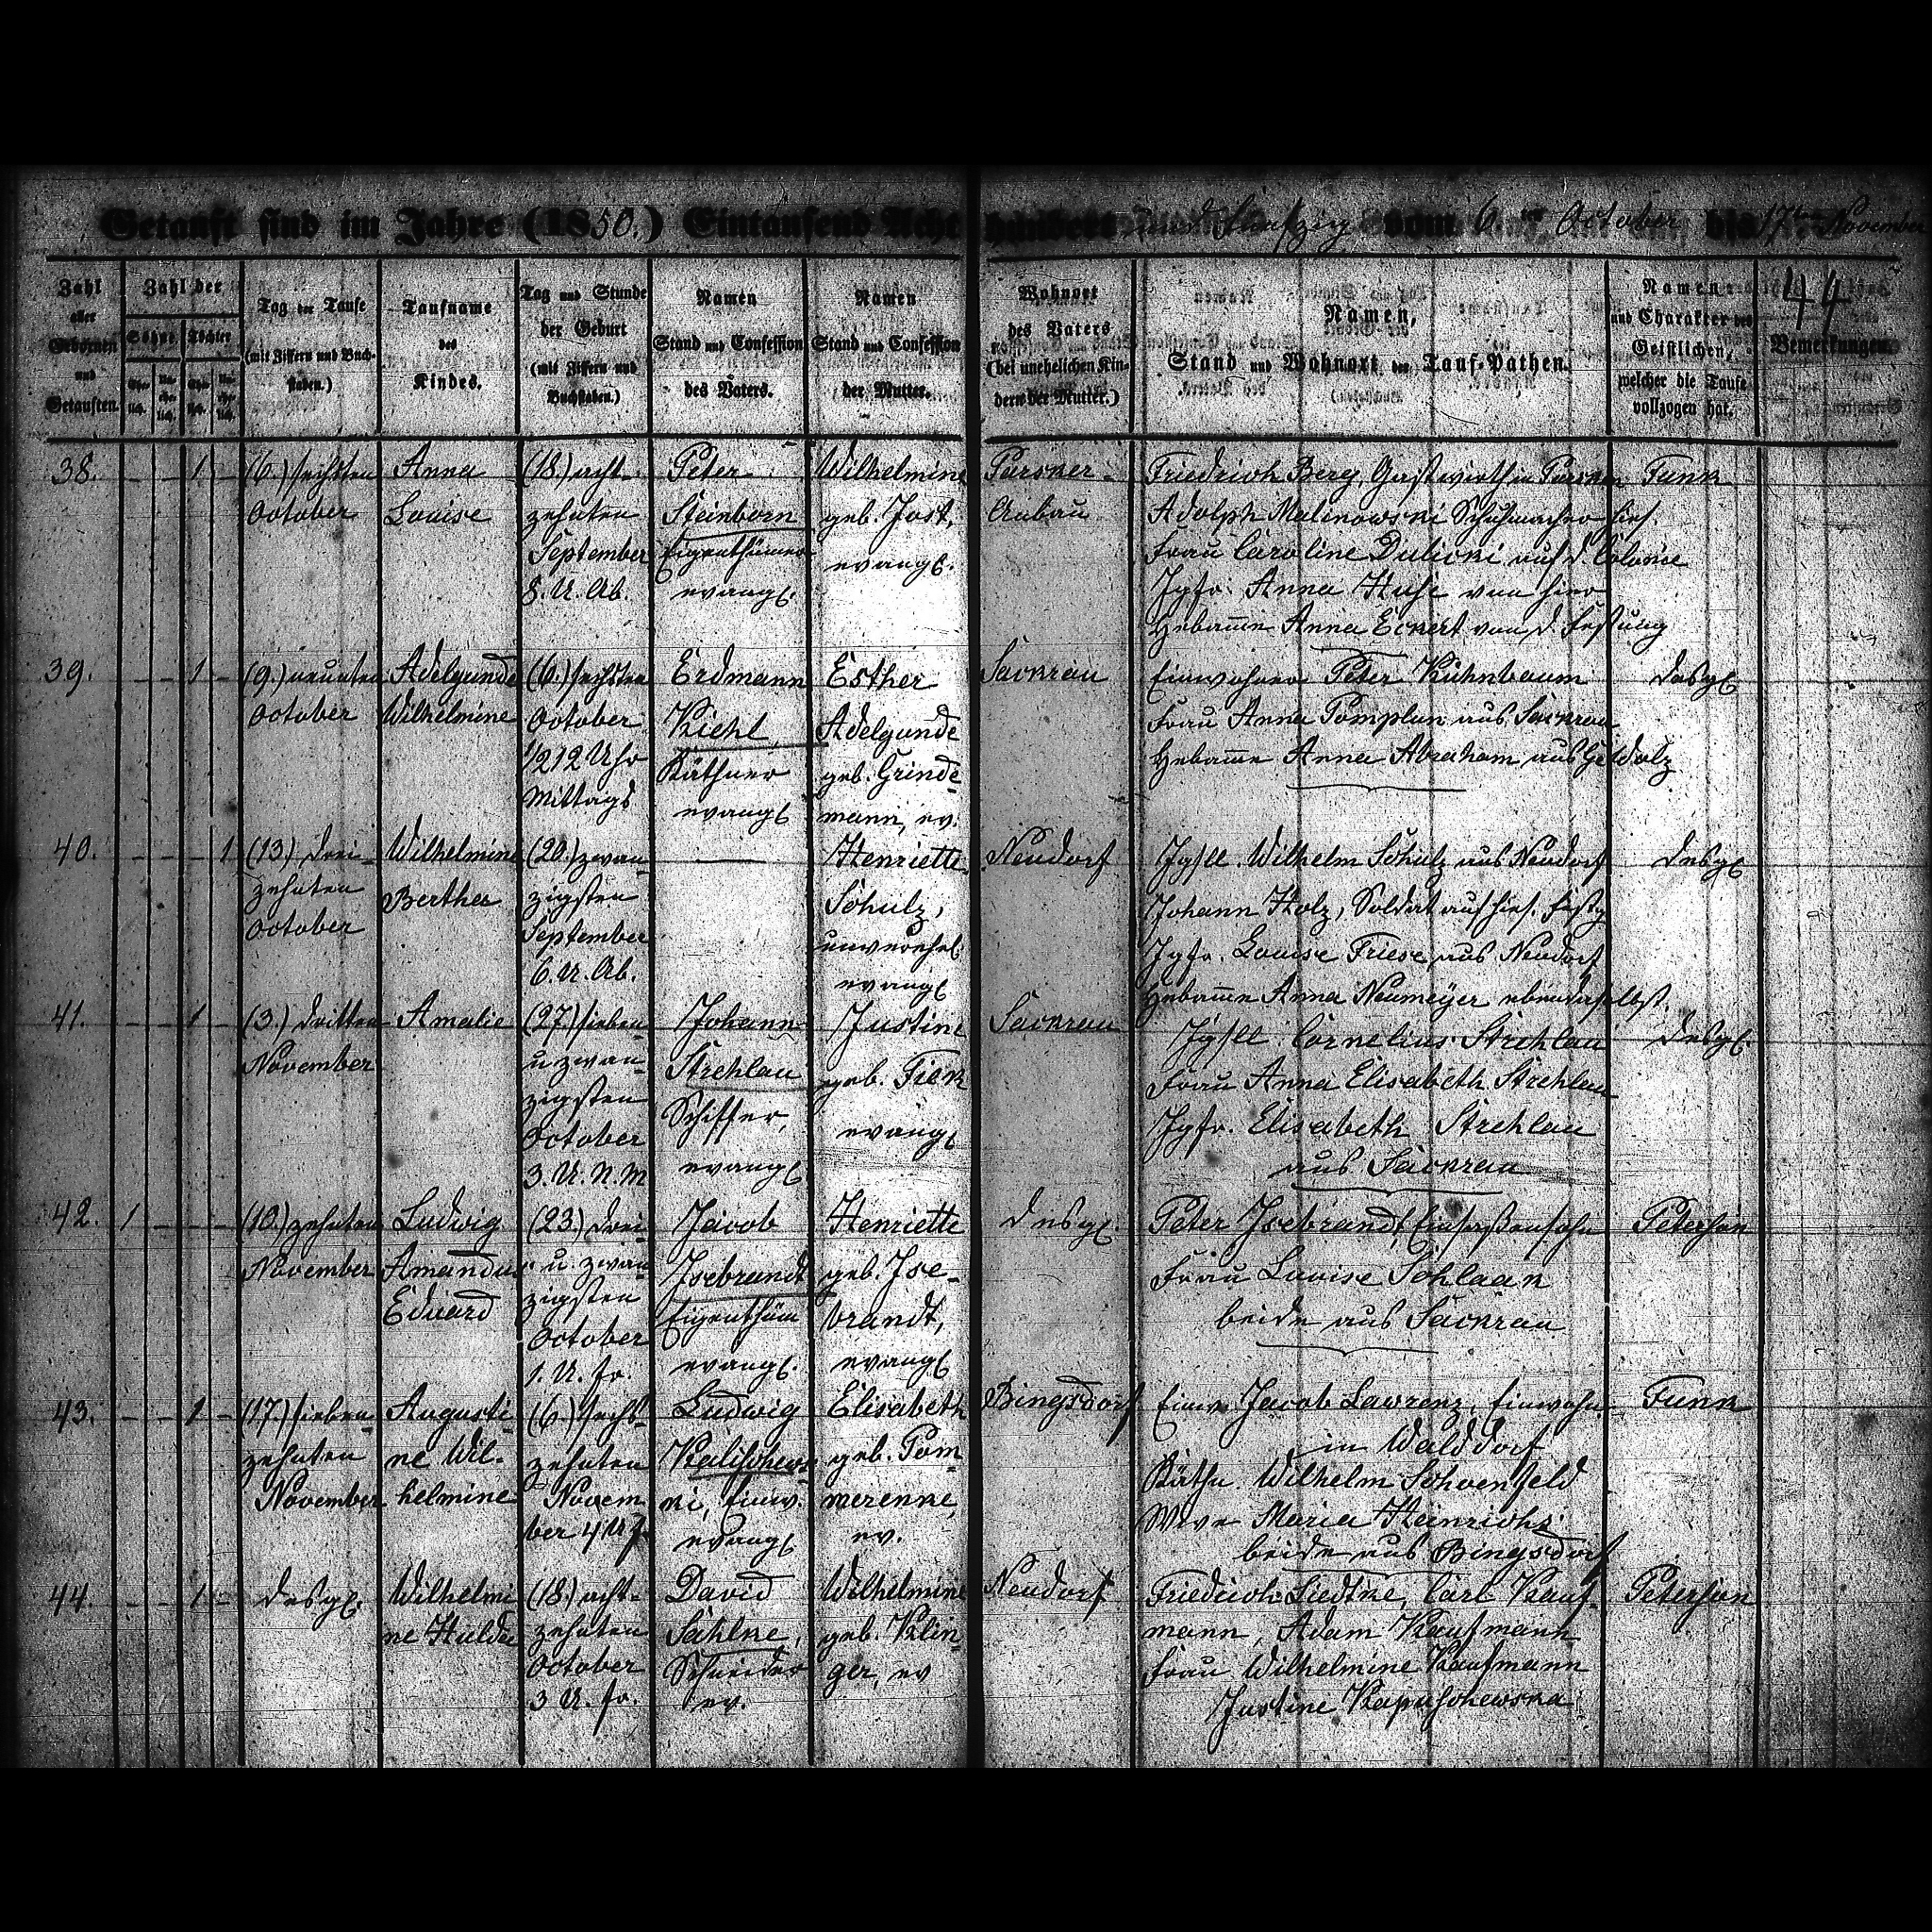 Getauft sind im Jahre (1850.) Eintausend Acht hundert und Fünfzig vom 6ten October bis 17ten November
44
Zahl aller Gebornen und Getauften.
Zahl der
Söhne Töchter
Ehelich. Unehelich. Ehelich. Unehelich.
Tag der Taufe (mit Ziffern und Buchstaben.)
Taufname des Kindes.
Tag und Stunde der Geburt (mit Ziffern und Buchstaben.)
Namen Stand und Confession des Vaters.
Namen Stand und Confession der Mutter.
Wohnort des Vaters (bei unehelichen Kindern der Mutter.)
Namen, Stand und Wohnort der Tauf-Pathen.
Namen und Charakter des Geistlichen, welcher die Taufe vollzogen hat.
Bemerkungen.
38. - - 1 -
(6.) sechsten
October
Anna
Louise
(18.) acht-
zehnten
September
8. U. Ab.
Peter
Steinborn
Eigenthümer
evangl.
Wilhelmine
geb. Jost,
evangl.
Parsker
Anbau
Friedrich Berg, Gastwirth in Parsken
Adolph Malinowski Schuhmacher hies.
Frau Caroline Dulicki auf d. Colonie
Jgfr. Anna Huse von hier
Hebamme Anna Eckert von d. Festung
Funk
39. - - 1 -
(9.) neunten
October
Adelgunde
Wilhelmine
(6.) sechsten
October
1/2 12 Uhr
Mittags
Erdmann
Kiehl
Käthner
evangl
Esther
Adelgunde
geb. Grinde-
mann, ev.
Sackrau
Einwohner Peter Kühnbaum
Frau Anna Pomplun aus Sackrau
Hebamme Anna Abraham aus
desgl
40. - - - 1
(13) drei-
zehnten
October
Wilhelmine
Bertha
(20.) zwan-
zigsten
September
6. U. Ab.
Henriette
Schulz,
unverehel.
evangl
Neudorf
Jgsll. Wilhelm Schulz aus Neudorf
Johann Holz, Soldat auf hies. Festg
Jgfr. Louise Friese aus Neudorf
Hebamme Anna Neumeyer ebendaselbst.
desgl
41. - - 1 -
(3.) dritten
November
Amalie
(27) sieben-
u zwan-
zigsten
October
3. U. N. M
Johann
Strehlau
Schiffer,
evangl
Justine
geb. Fick
evangl
Sackrau
Jgsll. Cornelius Strehlau
Frau Anna Elisabeth Strehlau
Jgfr. Elisabeth Strehlau
aus Sackrau
desgl.
42. 1 - - -
(10.) zehnten
November
Ludwig
Amandus
Eduard
(23.) drei-
u. zwan-
zigsten
October
1. U. fr.
Jacob
Isebrandt
Eigenthüm
evangl.
Henriette
geb. Ise-
brandt,
evangl
desgl.
Peter Isebrandt, Einsaßensohn
Frau Louise Schlaak
beide aus Sackrau
Peterson
43. - - 1 -
(17.) sieben-
zehnten
November
Augusti-
ne Wil-
helmine
(6) sechs-
zehnten
Novem
ber 4 U f.
Ludwig
Kalischews-
ki, Einw.
evangl
Elisabeth
geb. Pom-
merenke,
ev.
Bingsdorf
Einw. Jacob Lawrenz, Einwohn.
in Walddorf
Käthn. Wilhelm Schoenfeld
Wwe Maria Heinrichs
beide aus Bingsdorf
Funk
44. - - 1 -
desgl.
Wilhelmi
ne Hulda
(18.) acht-
zehnten
October
3 U. fr.
David
Sahlke,
Schneider
ev.
Wilhelmine
geb. Klin-
ger, ev
Neudorf
Friedrich Liedtke, Carl Kauf-
mann, Adam Kaufmann
Frau Wilhelmine Kaufmann
Justine Kapuschewska
Peterson